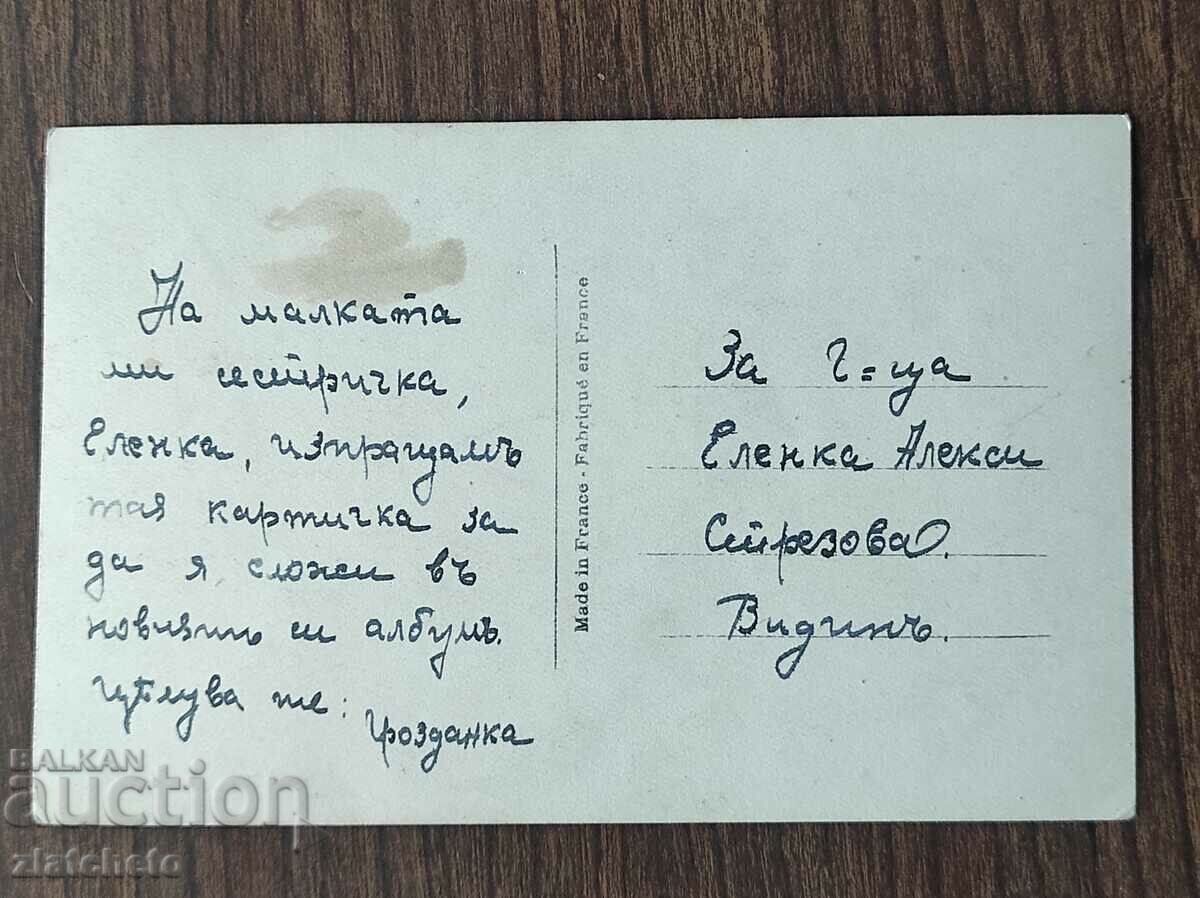 На малката
ми сестричка,
Еленка, изпращамъ
тая картичка за
да я сложи въ
новиятъ си албумъ.
Цѣлува те:
Грозданка
Made in France - Fabriqué en France
За Г=ца
Еленка Алекси
Стрезова.
Видинъ.
BALKAN
auction
zlatcheto